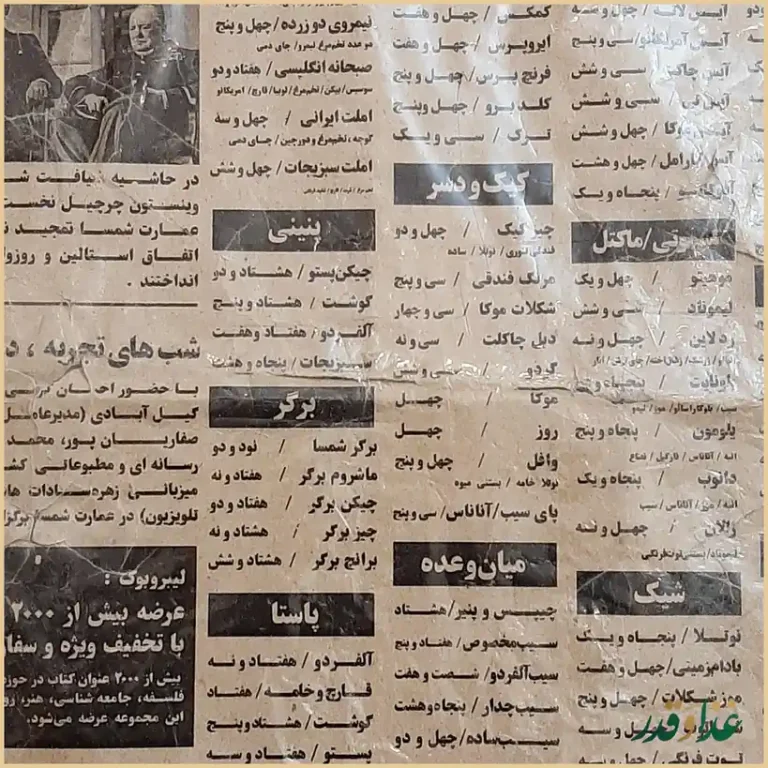 آیس لاته / چهل و سه
آیس آمریکانو / سی و پنج
آیس چاکلت / سی و شش
آیس تی / سی و شش
آیس موکا / چهل و شش
آیس کارامل / چهل و هشت
/ پنجاه و یک
اسموتی/ماکتل
موهیتو / چهل و یک
لیموناد / سی و شش
ردلاین / چهل و نه
/ پنجاه و پنج
سیب / باوکاراسائو / موز / لیمو
یلومون / پنجاه و پنج
انبه / آناناس / نارگیل / نعناع
دانوب / پنجاه و یک
انبه / موز / آناناس / سیب
زالان / چهل و نه
لیموناد/بستنی توت فرنگی
شیک
نوتلا / پنجاه و یک
بادام زمینی / چهل و هفت
موز شکلات / چهل و پنج
چهل و سه
توت فرنگی / چهل و سه
غذا و قدر
کمکس / چهل و هفت
ایروپرس / چهل و هفت
فرنچ پرس / چهل و پنج
کلد برو / چهل وپنج
ترک / سی و یک
کیک و دسر
چیز کیک / چهل و دو
فندقی/لوری / نوتلا / ساده
مرنگ فندقی / سی و پنج
شکلات موکا / سی و چهار
دبل چاکلت / سی و نه
گردو / سی و شش
موکا / چهل
روز / چهل
وافل / چهل و پنج
نوتلا خامه / بستنی میوه
پای سیب/آناناس/ سی و پنج
میان وعده
چیپس و پنیر/ هشتاد
سیب مخصوص / هفتاد و پنج
سیب آلفردو/ شصت و هفت
سیب چدار/ پنجاه وهشت
سیب ساده/ چهل و دو
نیمروی دو زرده / چهل و پنج
دو عدد تخم‌مرغ نیمرو / چای دمی
صبحانه انگلیسی / هفتاد و دو
سوسیس / بیکن / تخم‌مرغ / لوبیا / قارچ / آمریکانو
املت ایرانی / چهل و سه
گوجه ، تخم‌مرغ و دورچین / چای دمی
املت سبزیجات / چهل و شش
پنینی
چیکن پستو / هشتاد و دو
گوشت / هشتاد و پنج
آلفردو / هفتاد وهفت
سبزیجات / پنجاه و هشت
برگر
برگر شمسا / نود و دو
ماشروم برگر / هفتاد و نه
چیکن برگر / هفتاد و دو
چیز برگر / هشتاد و نه
برانچ برگر / هشتاد و شش
پاستا
آلفردو / هفتاد و نه
قارچ وخامه / هفتاد
گوشت / هشتاد وپنج
پستو / هفتاد و سه
در حاشیه ضیافت ش
وینستون چرچیل نخست
عمارت شمسا تمجید ن
اتفاق استالین و روزو
انداختند .
شب های تجربه ، د
با حضور احسان کرمی
گیل آبادی (مدیرعامل
صفاریان پور، محمد
رسانه ای و مطبوعاتی کش
میزبانی زهره سادات ها
تلویزیون) در عمارت شمسا برگزا
لیبروبوک :
عرضه بیش از ۲۰۰۰
با تخفیف ویژه و سفا
بیش از ۲۰۰۰ عنوان کتاب در حوزه
فلسفه، جامعه شناسی، هنر، رو
این مجموعه عرضه می‌شود.